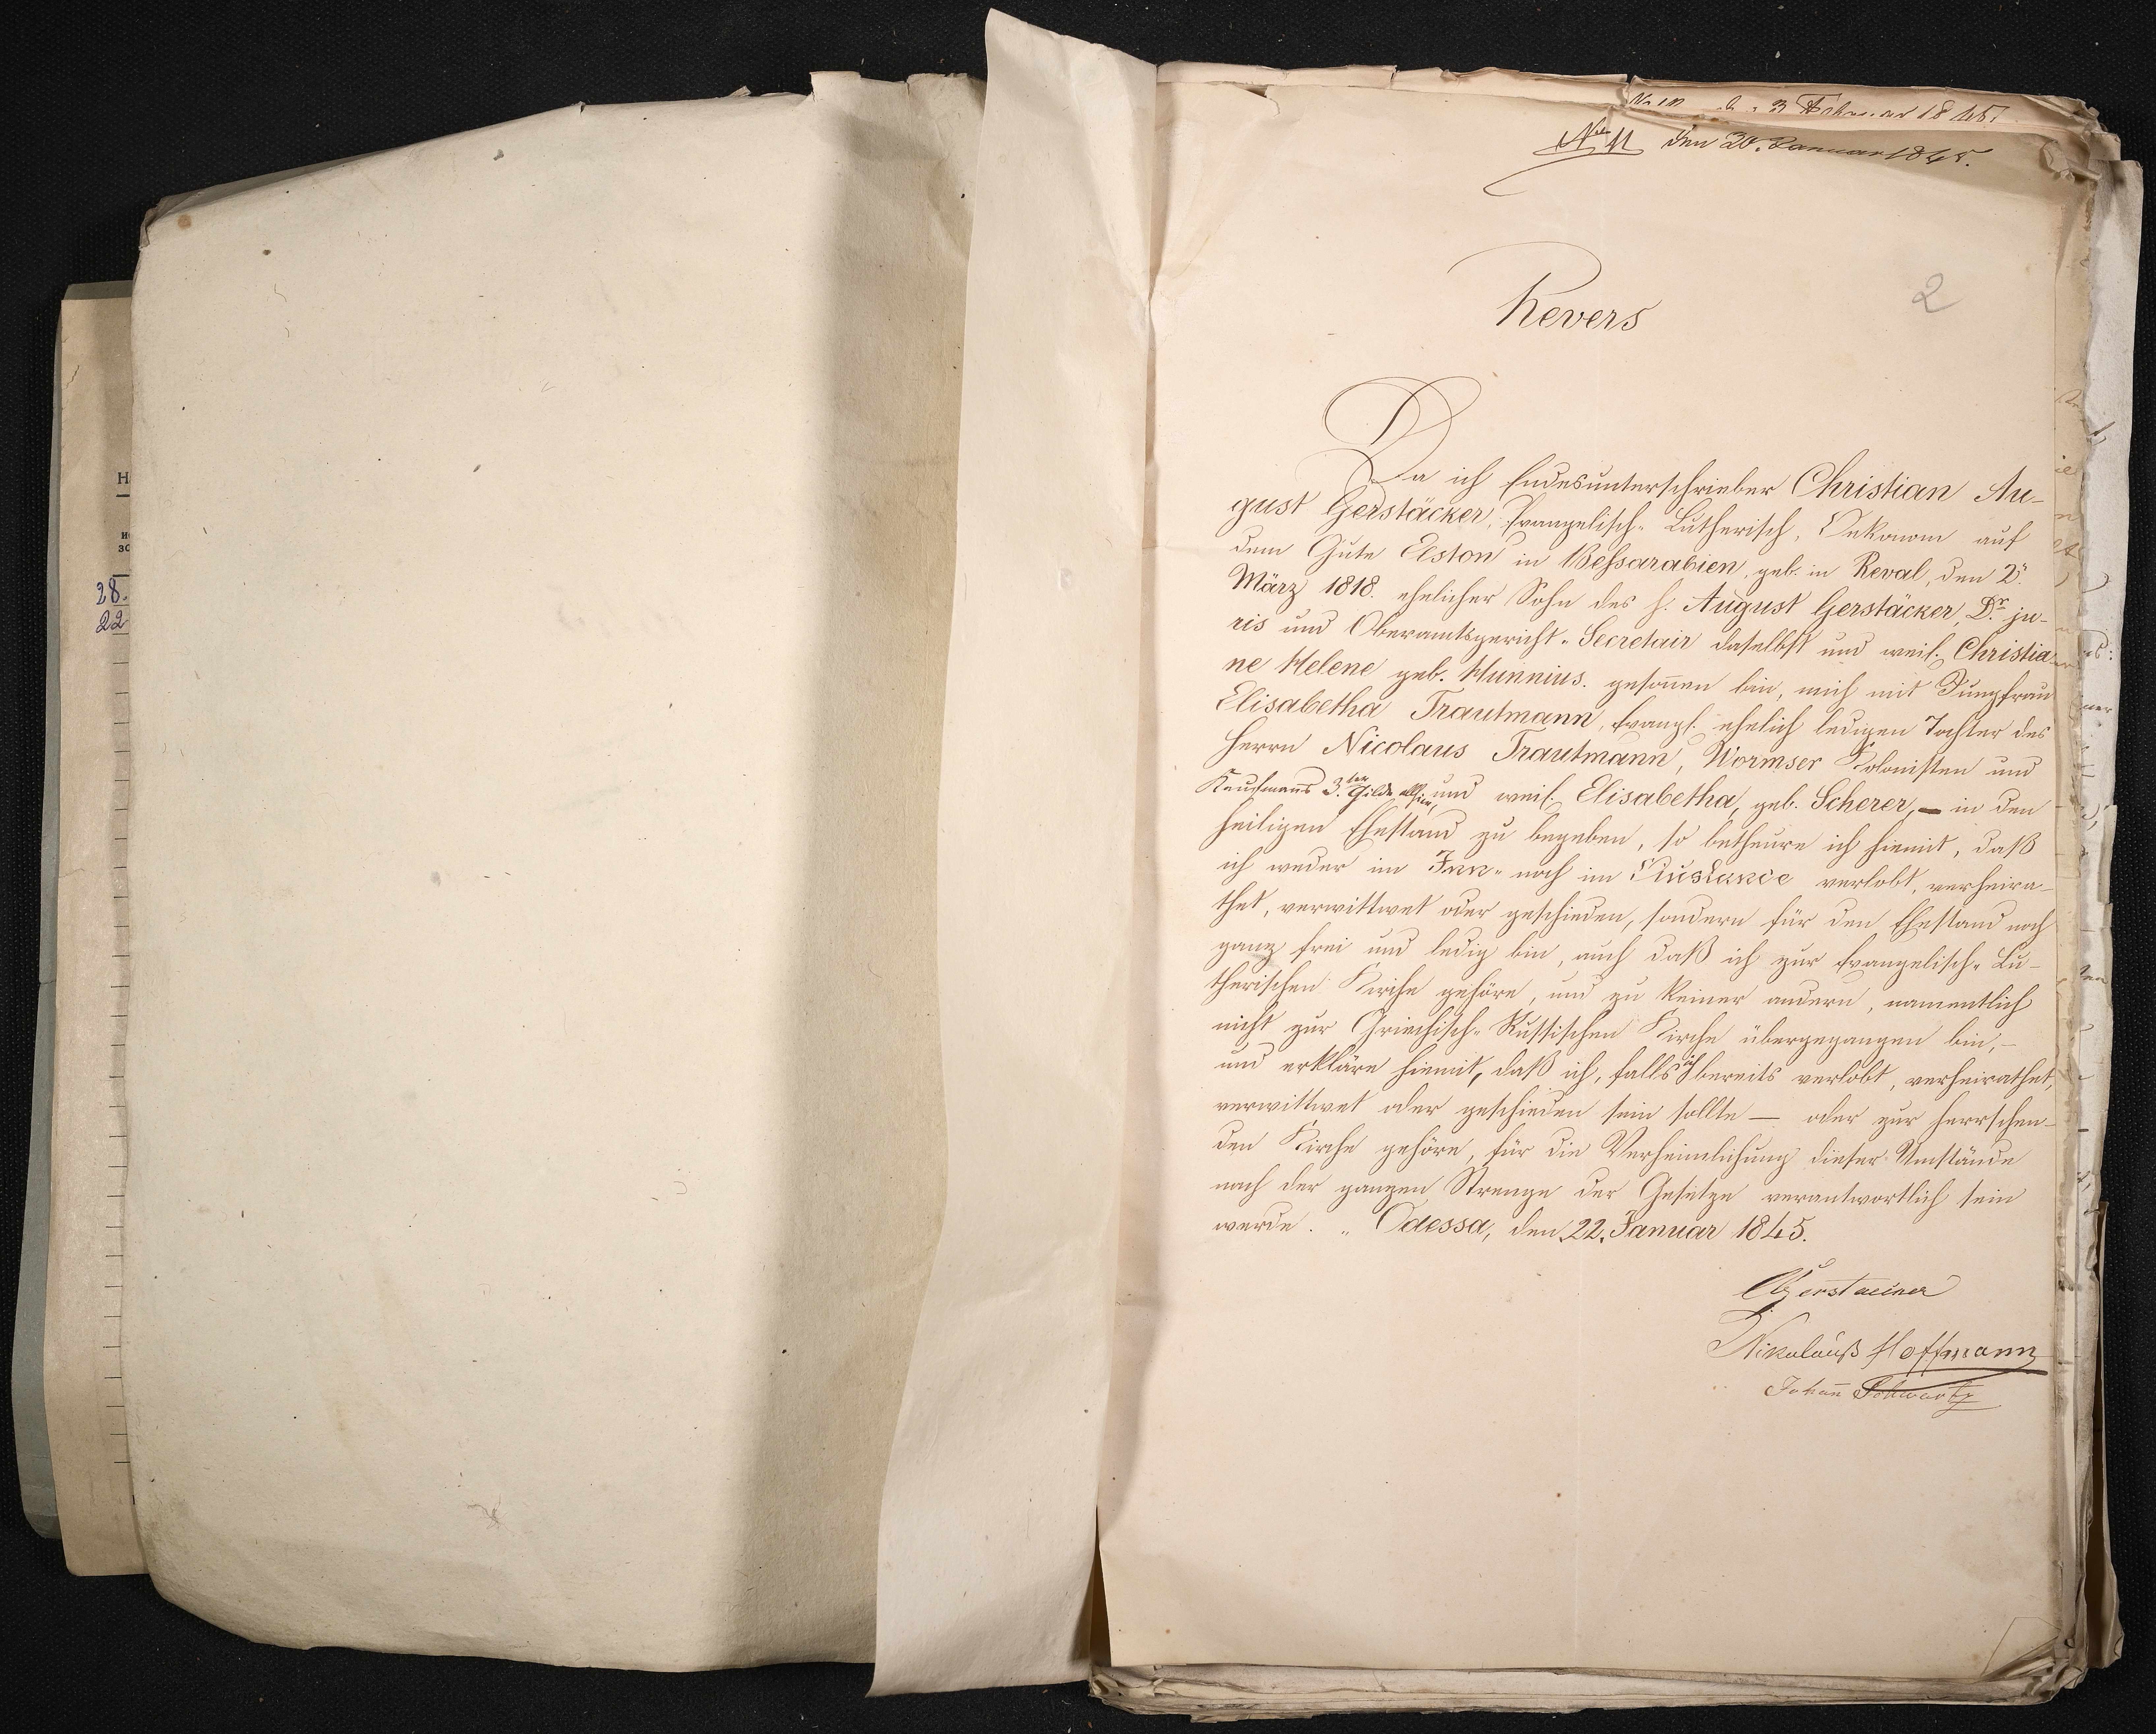 den 3 Februar 1845
No 11 den 20. Januar 1845.
2
Revers
Da ich Endesunterschriebener Christian Au-
gust Gerstäcker, Evangelisch-Lutherisch, Oekonom auf
dem Gute Elston in Beßarabien, geb. in Reval, den 2.
März 1818. ehelicher Sohn des H. August Gerstäcker, Dr. ju-
ris und Oberamtsgericht-Secretair daselbst und weil. Christia-
ne Helene geb. Hunnius. gesonnen bin, mich mit Jungfrau
Elisabetha Trautmann, Evangl. ehelich ledigen Tochter des
Herrn Nicolaus Trautmann, Wormser Kolonisten und
Kaufmanns 3.ter Gilde allhier, und weil. Elisabetha, geb. Scherer, – in den
heiligen Ehestand zu begeben, so betheure ich hiemit, daß
ich weder im In- noch im Auslande verlobt, verheira-
thet, verwittwet oder geschieden, sondern für den Ehestand noch
ganz frei und ledig bin, auch daß ich zur Evangelisch-Lu-
therischen Kirche gehöre, und zu keiner andern, namentlich
nicht zur Griechisch-Russischen Kirche übergegangen bin, –
und erkläre hiemit, daß ich, falls ich bereits verlobt, verheirathet,
verwittwet oder geschieden sein sollte – oder zur herrschen-
den Kirche gehöre, für die Verheimlichung dieser Umstände
nach der ganzen Strenge der Gesetze verantwortlich sein
werde. Odessa, den 22. Januar 1845.
Nikolauß Hoffmann
Johann Schwartz
28.
22